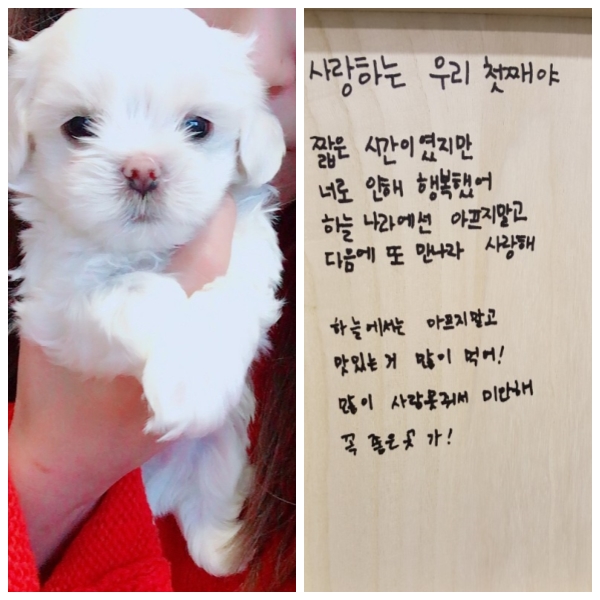 사랑하는 우리 첫째야
짧은 시간이였지만
너로 인해 행복했어
하늘 나라에선 아프지말고
다음에 또 만나자 사랑해
하늘에서는 아프지말고
맛있는거 많이 먹어!
많이 사랑못줘서 미안해
꼭 좋은곳 가!